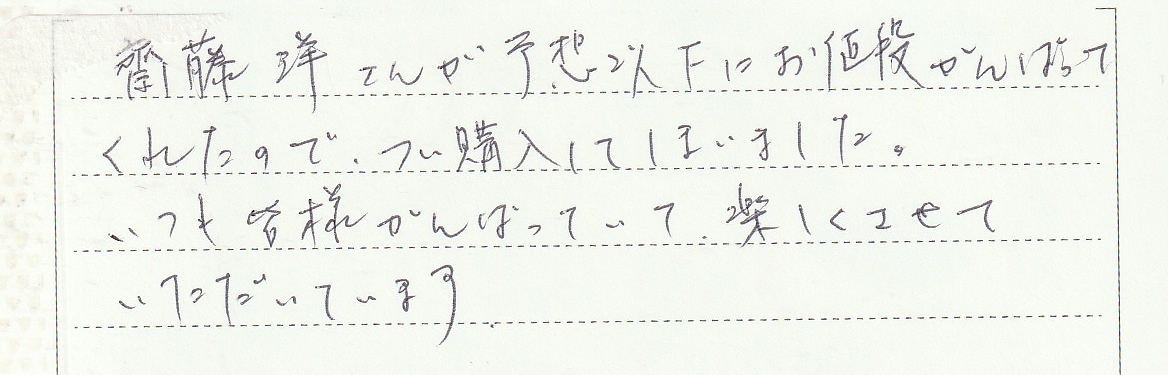 齋藤 洋さんが予想以下にお値段がんばって
くれたので、つい購入してしまいました。
いつも皆様がんばっていて、楽しくさせて
いただいています